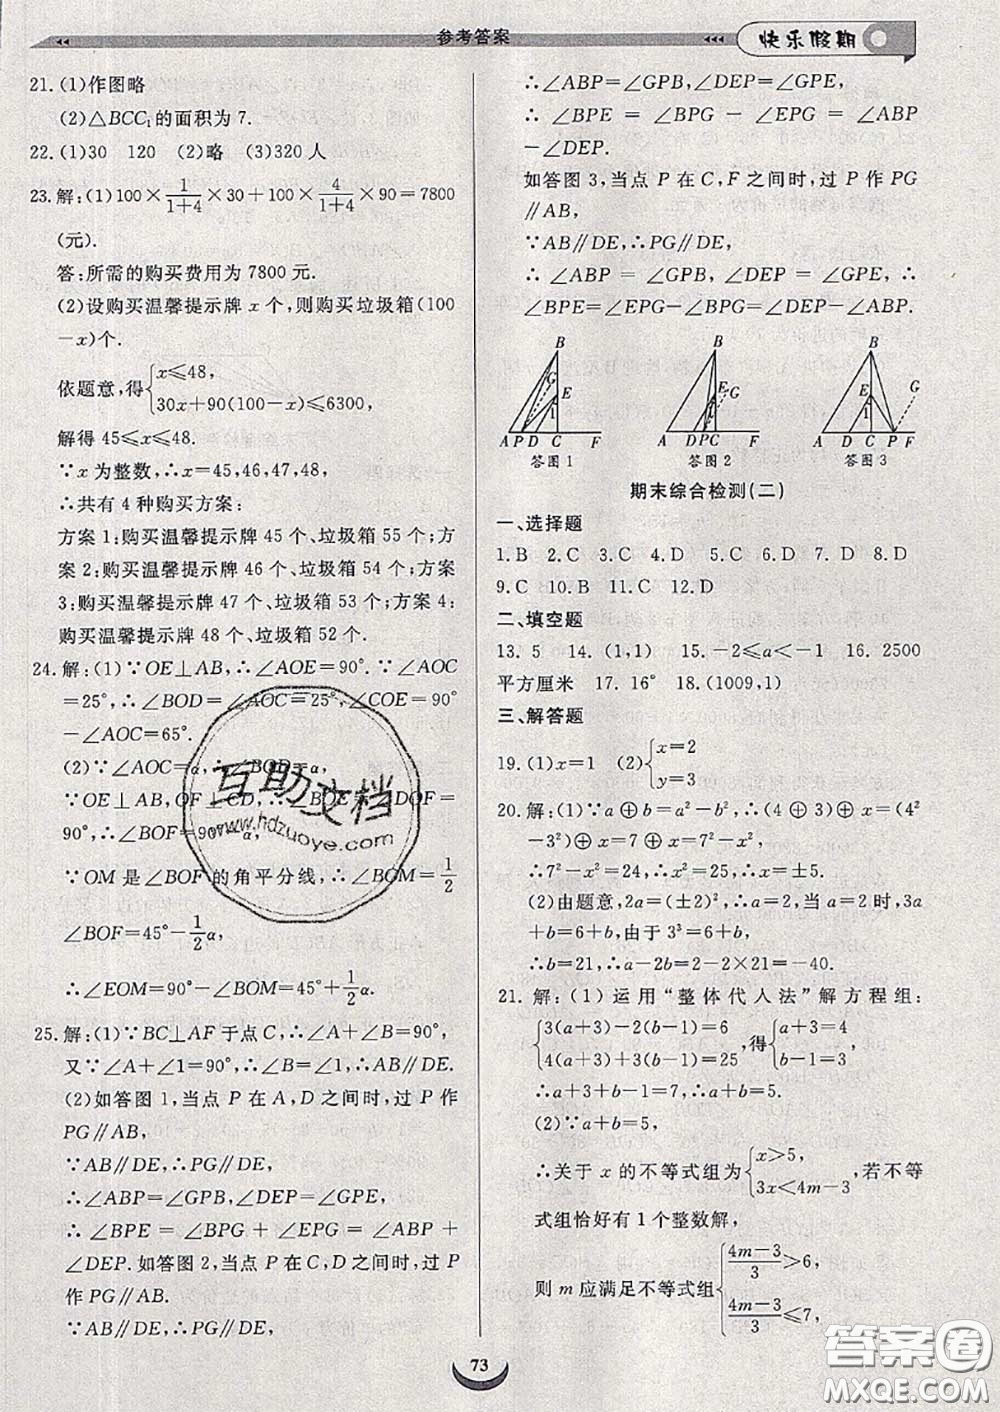 参考答案
快乐假期
21.(1)作图略
(2)△BCC₁的面积为7.
22.(1)30 120 (2)略 (3)320人
23.解:(1)100×1/(1+4)×30+100×4/(1+4)×90=7800
(元).
答:所需的购买费用为7800元.
(2)设购买温馨提示牌x个,则购买垃圾箱(100
-x)个.
依题意,得{x≤48,
30x+90(100-x)≤6300,
解得45≤x≤48.
∵x为整数,∴x=45,46,47,48,
∴共有4种购买方案:
方案1:购买温馨提示牌45个、垃圾箱55个;方
案2:购买温馨提示牌46个、垃圾箱54个;方案
3:购买温馨提示牌47个、垃圾箱53个;方案4:
购买温馨提示牌48个、垃圾箱52个.
24.解:(1)∵OE⊥AB,∴∠AOE=90°.∵∠AOC
=25°,∴∠BOD=∠AOC=25°,∴∠COE=90°
-∠AOC=65°.
(2)∵∠AOC=α,∴∠BOD=α,
∵OE⊥AB,OF⊥CD,∴∠BOE=∠DOF=
90°,∴∠BOF=90°-α,
∵OM是∠BOF的角平分线,∴∠BOM=1/2
∠BOF=45°-1/2α,
∴∠EOM=90°-∠BOM=45°+1/2α.
25.解:(1)∵BC⊥AF于点C,∴∠A+∠B=90°,
又∵∠A+∠1=90°,∴∠B=∠1,∴AB∥DE.
(2)如答图1,当点P在A,D之间时,过P作
PG∥AB,
∵AB∥DE,∴PG∥DE,
∴∠ABP=∠GPB,∠DEP=∠GPE,
∴∠BPE=∠BPG+∠EPG=∠ABP+
∠DEP.如答图2,当点P在C,D之间时,过P
作PG∥AB.
∵AB∥DE,∴PG∥DE,
∴∠ABP=∠GPB,∠DEP=∠GPE,
∴∠BPE=∠BPG-∠EPG=∠ABP
-∠DEP.
如答图3,当点P在C,F之间时,过P作PG
∥AB,
∵AB∥DE,∴PG∥DE,
∴∠ABP=∠GPB,∠DEP=∠GPE,∴
∠BPE=∠EPG-∠BPG=∠DEP-∠ABP.
B G E 1 A P D C F
答图1
B E G 1 A D P C F
答图2
B E G 1 A D C P F
答图3
期末综合检测(二)
一、选择题
1.B 2.C 3.C 4.D 5.C 6.D 7.D 8.D
9.C 10.B 11.C 12.D
二、填空题
13.5 14.(1,1) 15.-2≤a<-1 16.2500
平方厘米 17.16° 18.(1009,1)
三、解答题
19.(1)x=1 (2){x=2
y=3
20.解:(1)∵a⊕b=a²-b²,∴(4⊕3)⊕x=(4²
-3²)⊕x=7⊕x=7²-x²,
∴7²-x²=24,∴x²=25,∴x=±5.
(2)由题意,2a=(±2)²,∴a=2,当a=2时,3a
+b=6+b,由于3³=6+b,
∴b=21,∴a-2b=2-2×21=-40.
21.解:(1)运用“整体代人法”解方程组:
{3(a+3)-2(b-1)=6
4(a+3)+(b-1)=25,得{a+3=4
b-1=3,
∴a+3+b-1=7,∴a+b=5.
(2)∵a+b=5,
∴关于x的不等式组为{x>5,
3x<4m-3,若不等
式组恰好有1个整数解,
则m应满足不等式组{(4m-3)/3>6,
(4m-3)/3≤7,
73
互助文档
www.hdzuoye.com
答案圈
MXQE.COM